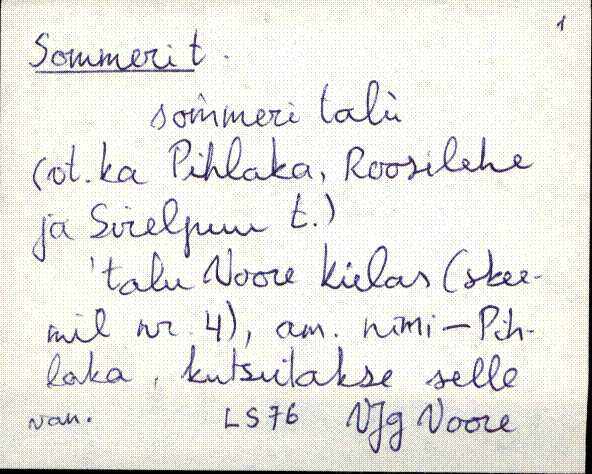 1
Sommeri t.
sommeri talu
(vt. ka Pihlaka, Roosilehe
ja Sirelpuu t.)
'talu Voore külas (skee-
mil nr. 4), am. nimi – Pih-
laka, kutsutakse selle
van. LS 76 VJg Voore